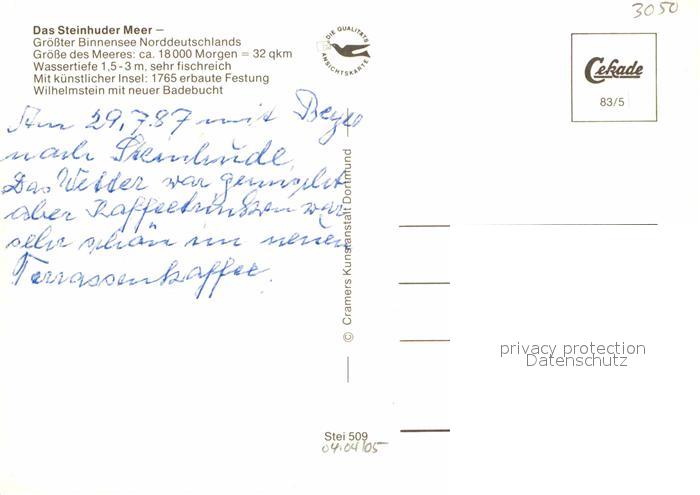 3050
Das Steinhuder Meer –
Größter Binnensee Norddeutschlands
Größe des Meeres: ca. 18000 Morgen = 32 qkm
Wassertiefe 1,5 - 3 m, sehr fischreich
Mit künstlicher Insel: 1765 erbaute Festung
Wilhelmstein mit neuer Badebucht
DIE QUALITÄTS
ANSICHTSKARTE
Cekade
83/5
Am 29.7.87 mit
nach Steinhude.
Das Wetter war gemischt
aber Kaffeetrinken war
sehr schön im neuen
Terrassenkaffee.
© Cramers Kunstanstalt Dortmund
privacy protection
Datenschutz
Stei 509
04.04/05